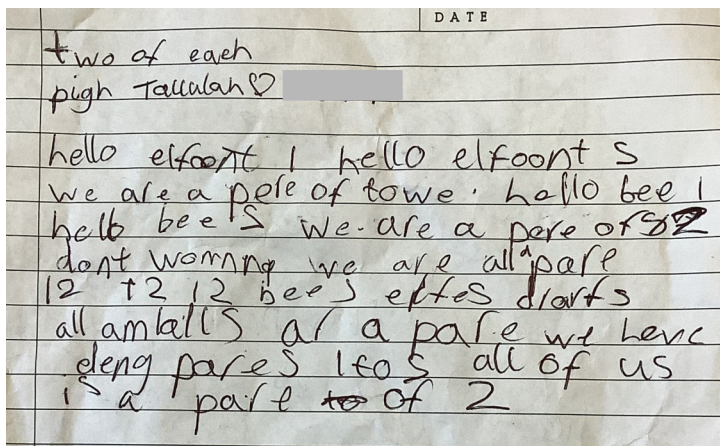 DATE
two of each
pigh Tallulah♡
hello elfoont 1 hello elfoont S
we are a pere of towe. hello bee 1
hello bee S we are a pere of 2
dont worring we are all a pare
12 +2 12 bees elfes
all am lalls ar a pare we heve
deng pares 1 to 5 all of us
is a pare of 2